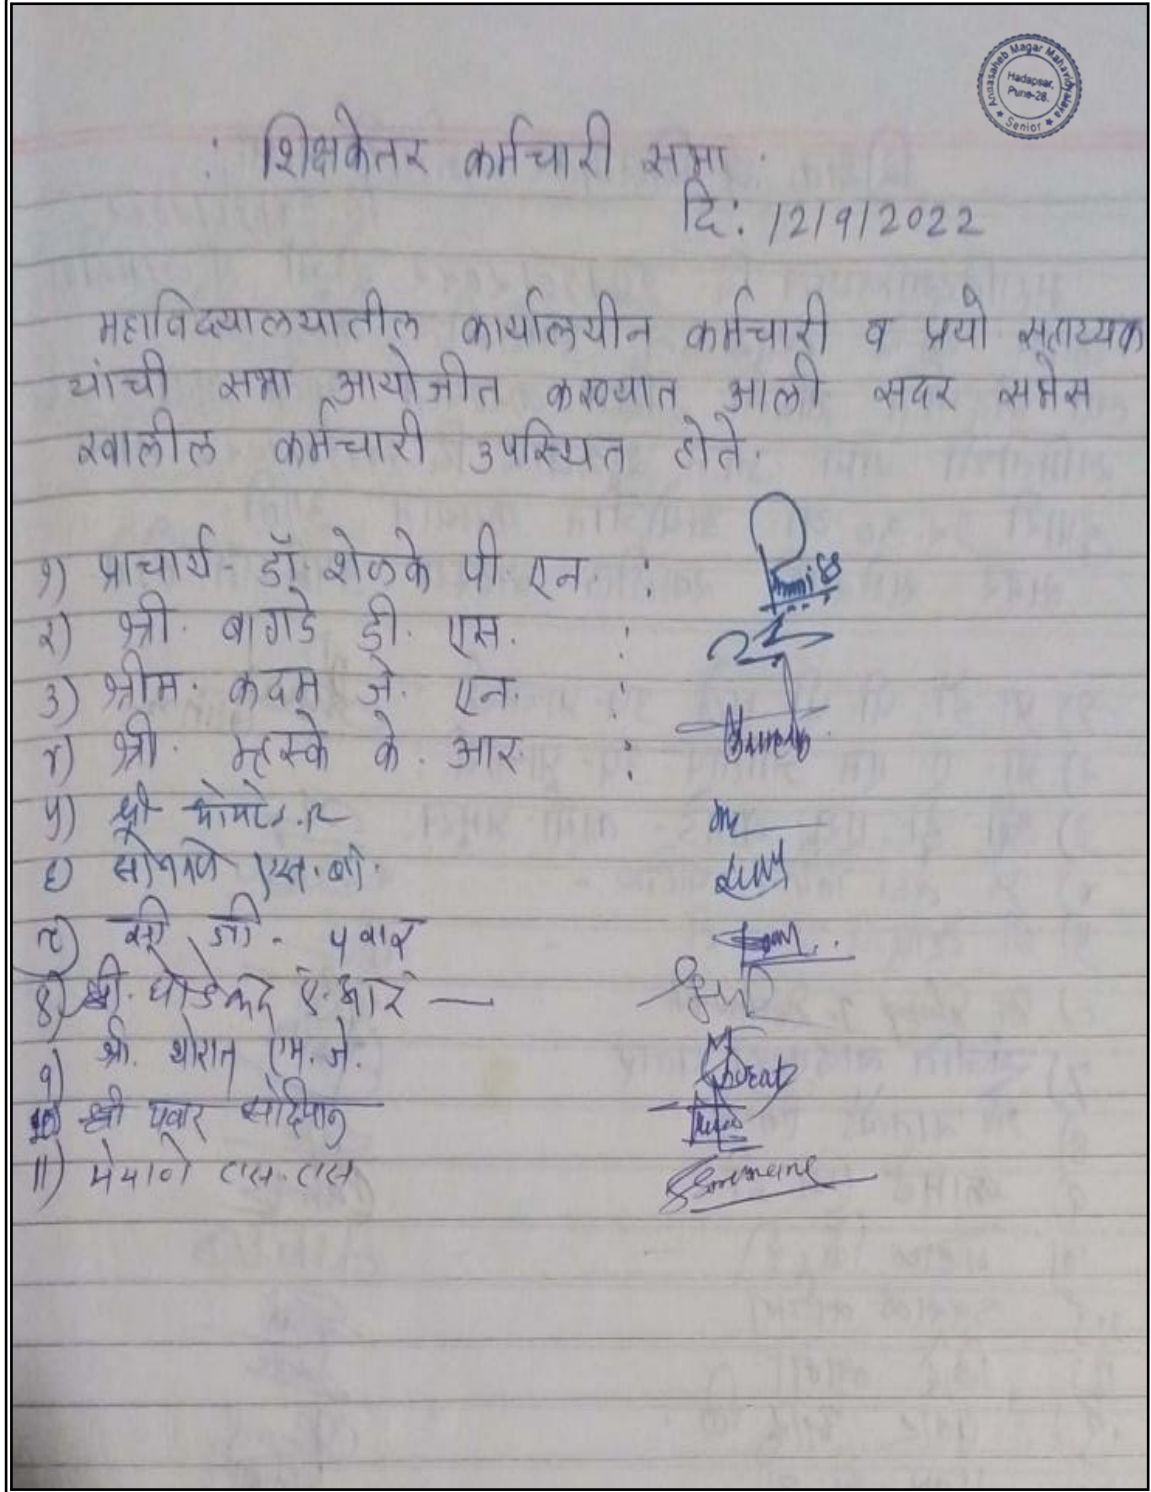 Annasaheb Magar Mahavidyalaya
Hadapsar,
Pune-28.
★ Senior ★
: शिक्षकेतर कर्मचारी सभा.
दि: 12/9/2022
महाविद्यालयातील कार्यालयीन कर्मचारी व प्रयो सहाय्यक
यांची सभा आयोजीत करण्यात आली सदर सभेस
खालील कर्मचारी उपस्थित होते.
१) प्राचार्य- डॉ. शेळके पी. एन. :
२) श्री. बागडे डी. एस. :
३) श्रीम. कदम जे. एन. :
४) श्री. म्हस्के के. आर. :
५) श्री
६) सोनवणे एस. बी.
जी. पवार
8) श्री. घोडेकर ए. आर —
9) श्री. थोरात एम. जे.
10) श्री पवार
11) मेमाणे एस. एस